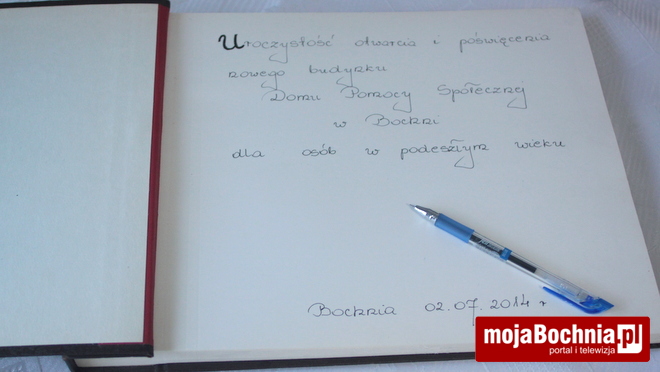 Uroczystość otwarcia i poświęcenia
nowego budynku
Domu Pomocy Społecznej
w Bochni
dla osób w podeszłym wieku
Bochnia 02.07.2014 r
mojaBochnia.pl
portal i telewizja